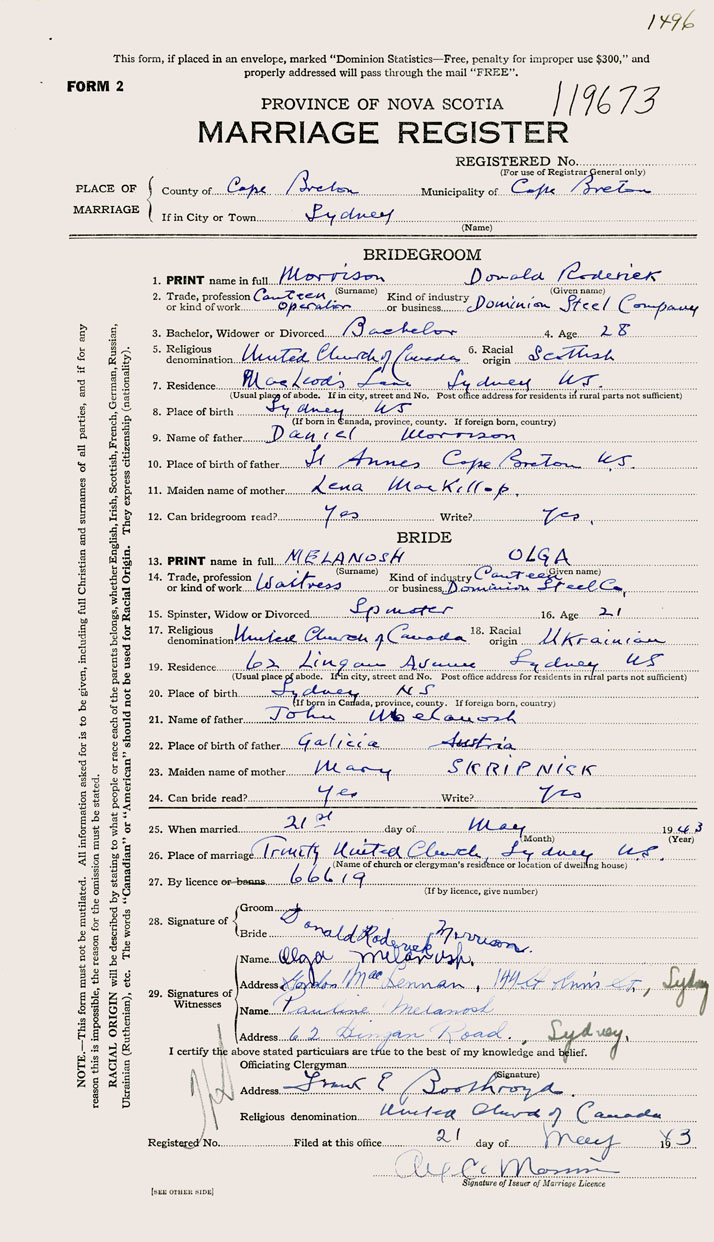 1496
This form, if placed in an envelope, marked "Dominion Statistics—Free, penalty for improper use $300," and
properly addressed will pass through the mail "FREE".
FORM 2
PROVINCE OF NOVA SCOTIA
119673
MARRIAGE REGISTER
REGISTERED No.
(For use of Registrar General only)
PLACE OF MARRIAGE
County of Cape Breton Municipality of Cape Breton
If in City or Town Sydney
(Name)
BRIDEGROOM
1. PRINT name in full Morrison Donald Roderick
(Surname) (Given name)
2. Trade, profession or kind of work Canteen operator Kind of industry or business Dominion Steel Company
3. Bachelor, Widower or Divorced Bachelor 4. Age 28
5. Religious denomination United Church of Canada 6. Racial origin Scottish
7. Residence MacLeod's Lane Sydney NS.
(Usual place of abode. If in city, street and No. Post office address for residents in rural parts not sufficient)
8. Place of birth Sydney NS
(If born in Canada, province, county. If foreign born, country)
9. Name of father Daniel Morrison
10. Place of birth of father St Annes Cape Breton N.S.
11. Maiden name of mother Lena MacKillop.
12. Can bridegroom read? Yes Write? Yes.
BRIDE
13. PRINT name in full MELANOSH OLGA
(Surname) (Given name)
14. Trade, profession or kind of work Waitress Kind of industry or business Canteen Dominion Steel Co,
15. Spinster, Widow or Divorced Spinster 16. Age 21
17. Religious denomination United Church of Canada 18. Racial origin Ukrainian
19. Residence 62 Lingan Avenue Sydney NS
(Usual place of abode. If in city, street and No. Post office address for residents in rural parts not sufficient)
20. Place of birth Sydney NS
(If born in Canada, province, county. If foreign born, country)
21. Name of father John Melanosh
22. Place of birth of father Galicia Austria
23. Maiden name of mother Mary SKRIPNICK
24. Can bride read? Yes Write? Yes
25. When married 21st day of May 1943
(Month) (Year)
26. Place of marriage Trinity United Church, Sydney N.S.
(Name of church or clergyman's residence or location of dwelling house)
27. By licence or banns 66619
(If by licence, give number)
28. Signature of
Groom
Bride Donald Roderick Morrison.
Olga Melanosh.
29. Signatures of Witnesses
Name
Address Gordon MacLennan, St., Sydney
Name Pauline Melanosh
Address 62 Lingan Road., Sydney.
I certify the above stated particulars are true to the best of my knowledge and belief.
Officiating Clergyman
(Signature)
Address Frank E Boothroyd.
Religious denomination United Church of Canada
Registered No. Filed at this office 21 day of May 1943
Signature of Issuer of Marriage Licence
[SEE OTHER SIDE]
NOTE.—This form must not be mutilated. All information asked for is to be given, including full Christian and surnames of all parties, and if for any
reason this is impossible, the reason for the omission must be stated.
RACIAL ORIGIN will be described by stating to what people or race each of the parents belongs, whether English, Irish, Scottish, French, German, Russian,
Ukrainian (Ruthenian), etc. The words "Canadian" or "American" should not be used for Racial Origin. They express citizenship (nationality).